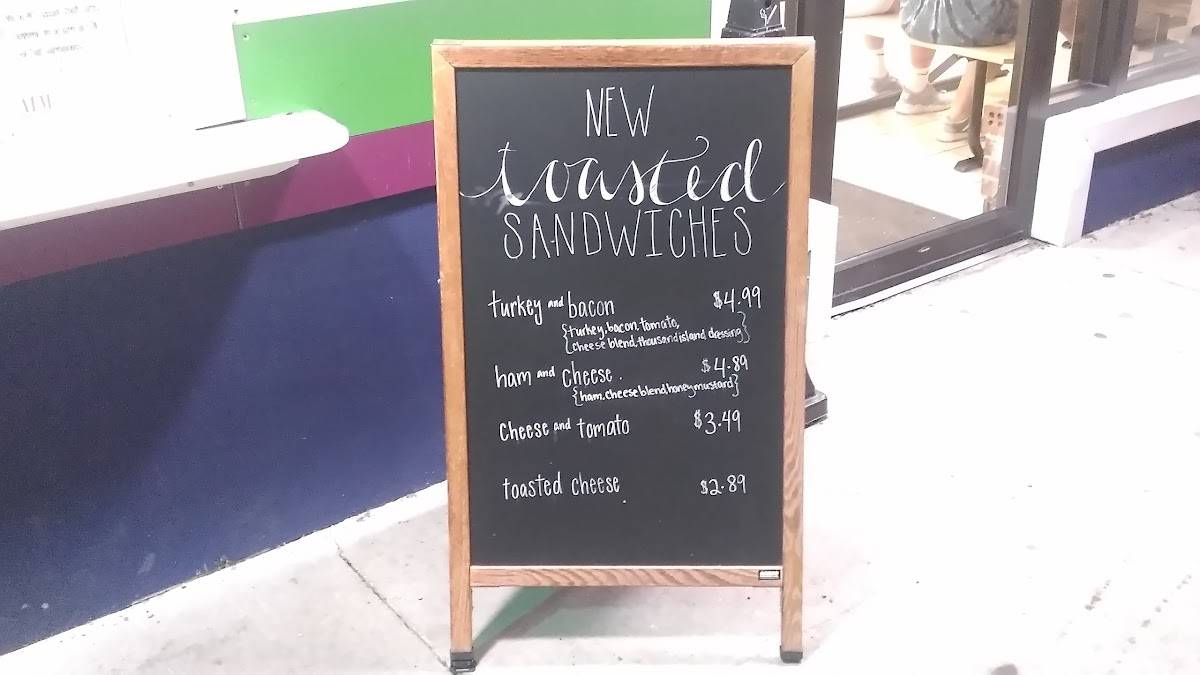 NEW
toasted
SANDWICHES
turkey and bacon $4.99
{turkey, bacon, tomato,
cheese blend, thousand island dressing}
ham and cheese $4.89
{ham, cheese blend, honey mustard}
cheese and tomato $3.49
toasted cheese $2.89